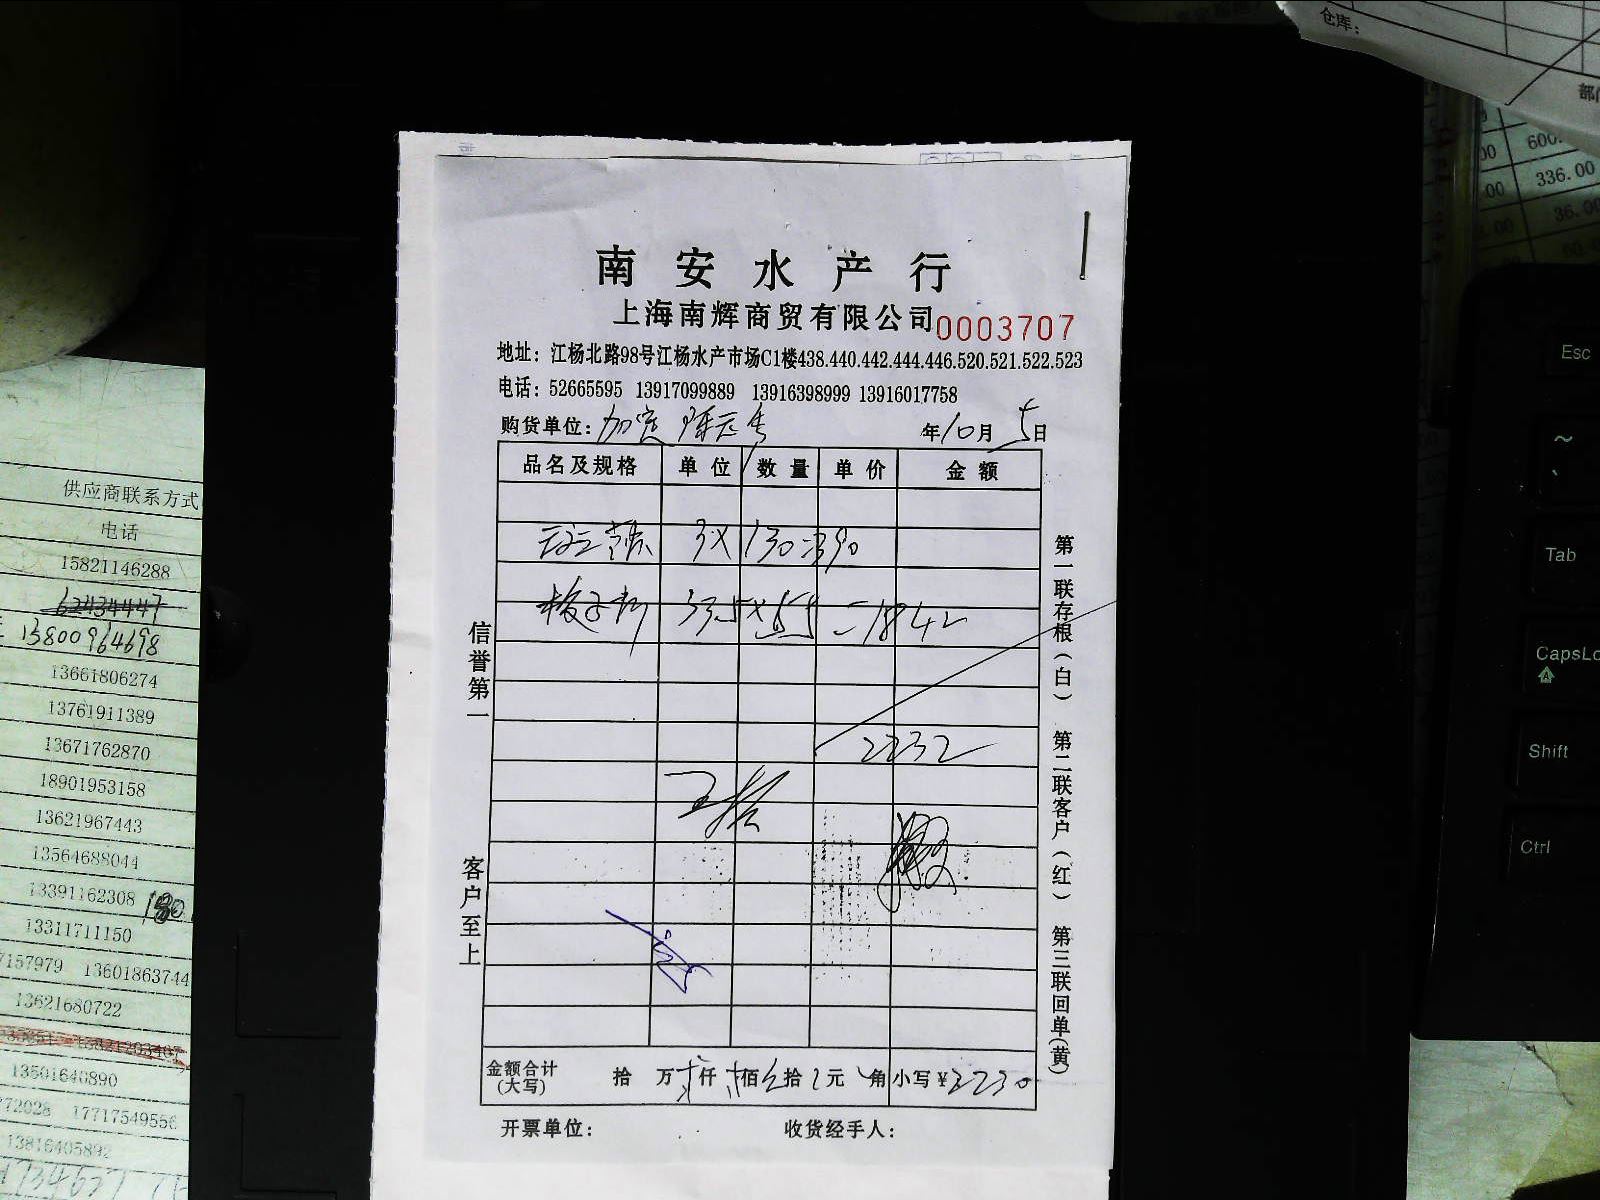 南安水产行
上海南辉商贸有限公司 0003707
地址：江杨北路98号江杨水产市场C1楼438.440.442.444.446.520.521.522.523
电话：52665595 13917099889 13916398999 13916017758
购货单位： 年10月5日
品名及规格 单位 数量 单价 金额
3×130=390
33.5×55=1842
2232
金额合计(大写) 拾 万 仟 佰 拾 元 角 小写¥2230
开票单位： 收货经手人：
信誉第一 客户至上
第一联存根(白) 第二联客户(红) 第三联回单(黄)
供应商联系方式
电话
15821146288
62434447
13800964698
13661806274
13761911389
13671762870
18901953158
13621967443
13564688044
13391162308
13311711150
7157979 13601863744
13621680722
13501640890
772028 17717549556
13816405892
仓库：
600.
336.00
36.00
Esc
~
Tab
CapsLo
Shift
Ctrl